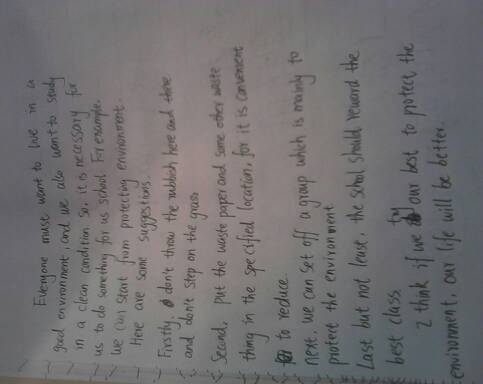 Everyone muse want to live in a
good environment, and we also want to study
in a clean condition. So, it is necessary for
us to do something for us school. For example.
we can start from protecting environment.
Here are some suggestions.
Firstly, don't throw the rubbish here and there
and don't step on the grass
Second, put the waste paper and some other waste
thing in the specified location, for it is convenient
to reduce.
next, we can set off a group which is mainly to
protect the environment
Last but not least, the school should reward the
best class
I think if we try our best to protect the
environment, our life will be better.